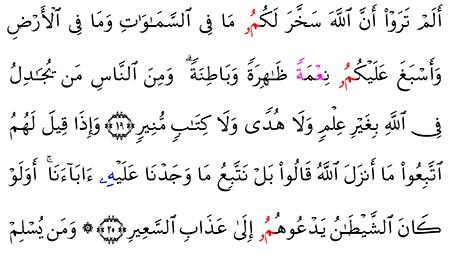 أَلَمْ تَرَوْاْ أَنَّ اَللَّهَ سَخَّرَ لَكُمُۥ مَا فِي اِلسَّمَٰوَٰتِ وَمَا فِي اِلْأَرْضِ
وَأَسْبَغَ عَلَيْكُمُۥ نِعْمَةً ظَٰهِرَةً وَبَاطِنَةً وَمِنَ اَلنَّاسِ مَن يُجَٰدِلُ
فِي اِللَّهِ بِغَيْرِ عِلْمٍ وَلَا هُدًى وَلَا كِتَٰبٍ مُّنِيرٍ ١٩ وَإِذَا قِيلَ لَهُمُ
اُتَّبِعُواْ مَا أَنزَلَ اَللَّهُ قَالُواْ بَلْ نَتَّبِعُ مَا وَجَدْنَا عَلَيْهِۦ ءَابَآءَنَا أَوَلَوْ
كَانَ اَلشَّيْطَٰنُ يَدْعُوهُمُۥ إِلَىٰ عَذَابِ اِلسَّعِيرِ ٢٠ ۞ وَمَن يُسْلِمْ